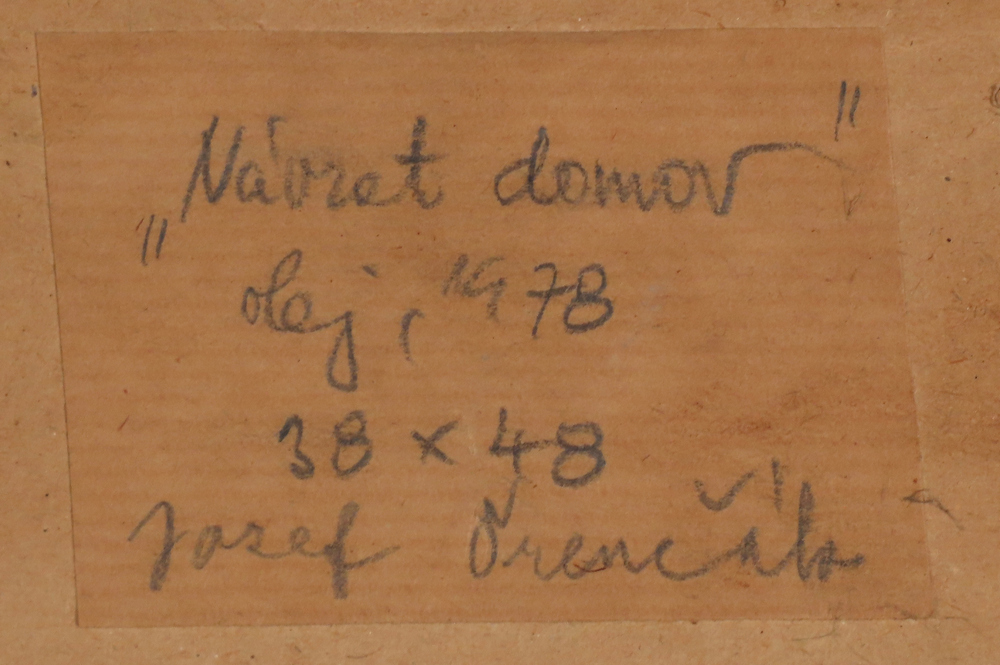 „Návrat domov"
olej, 1978
38 x 48
Jozef